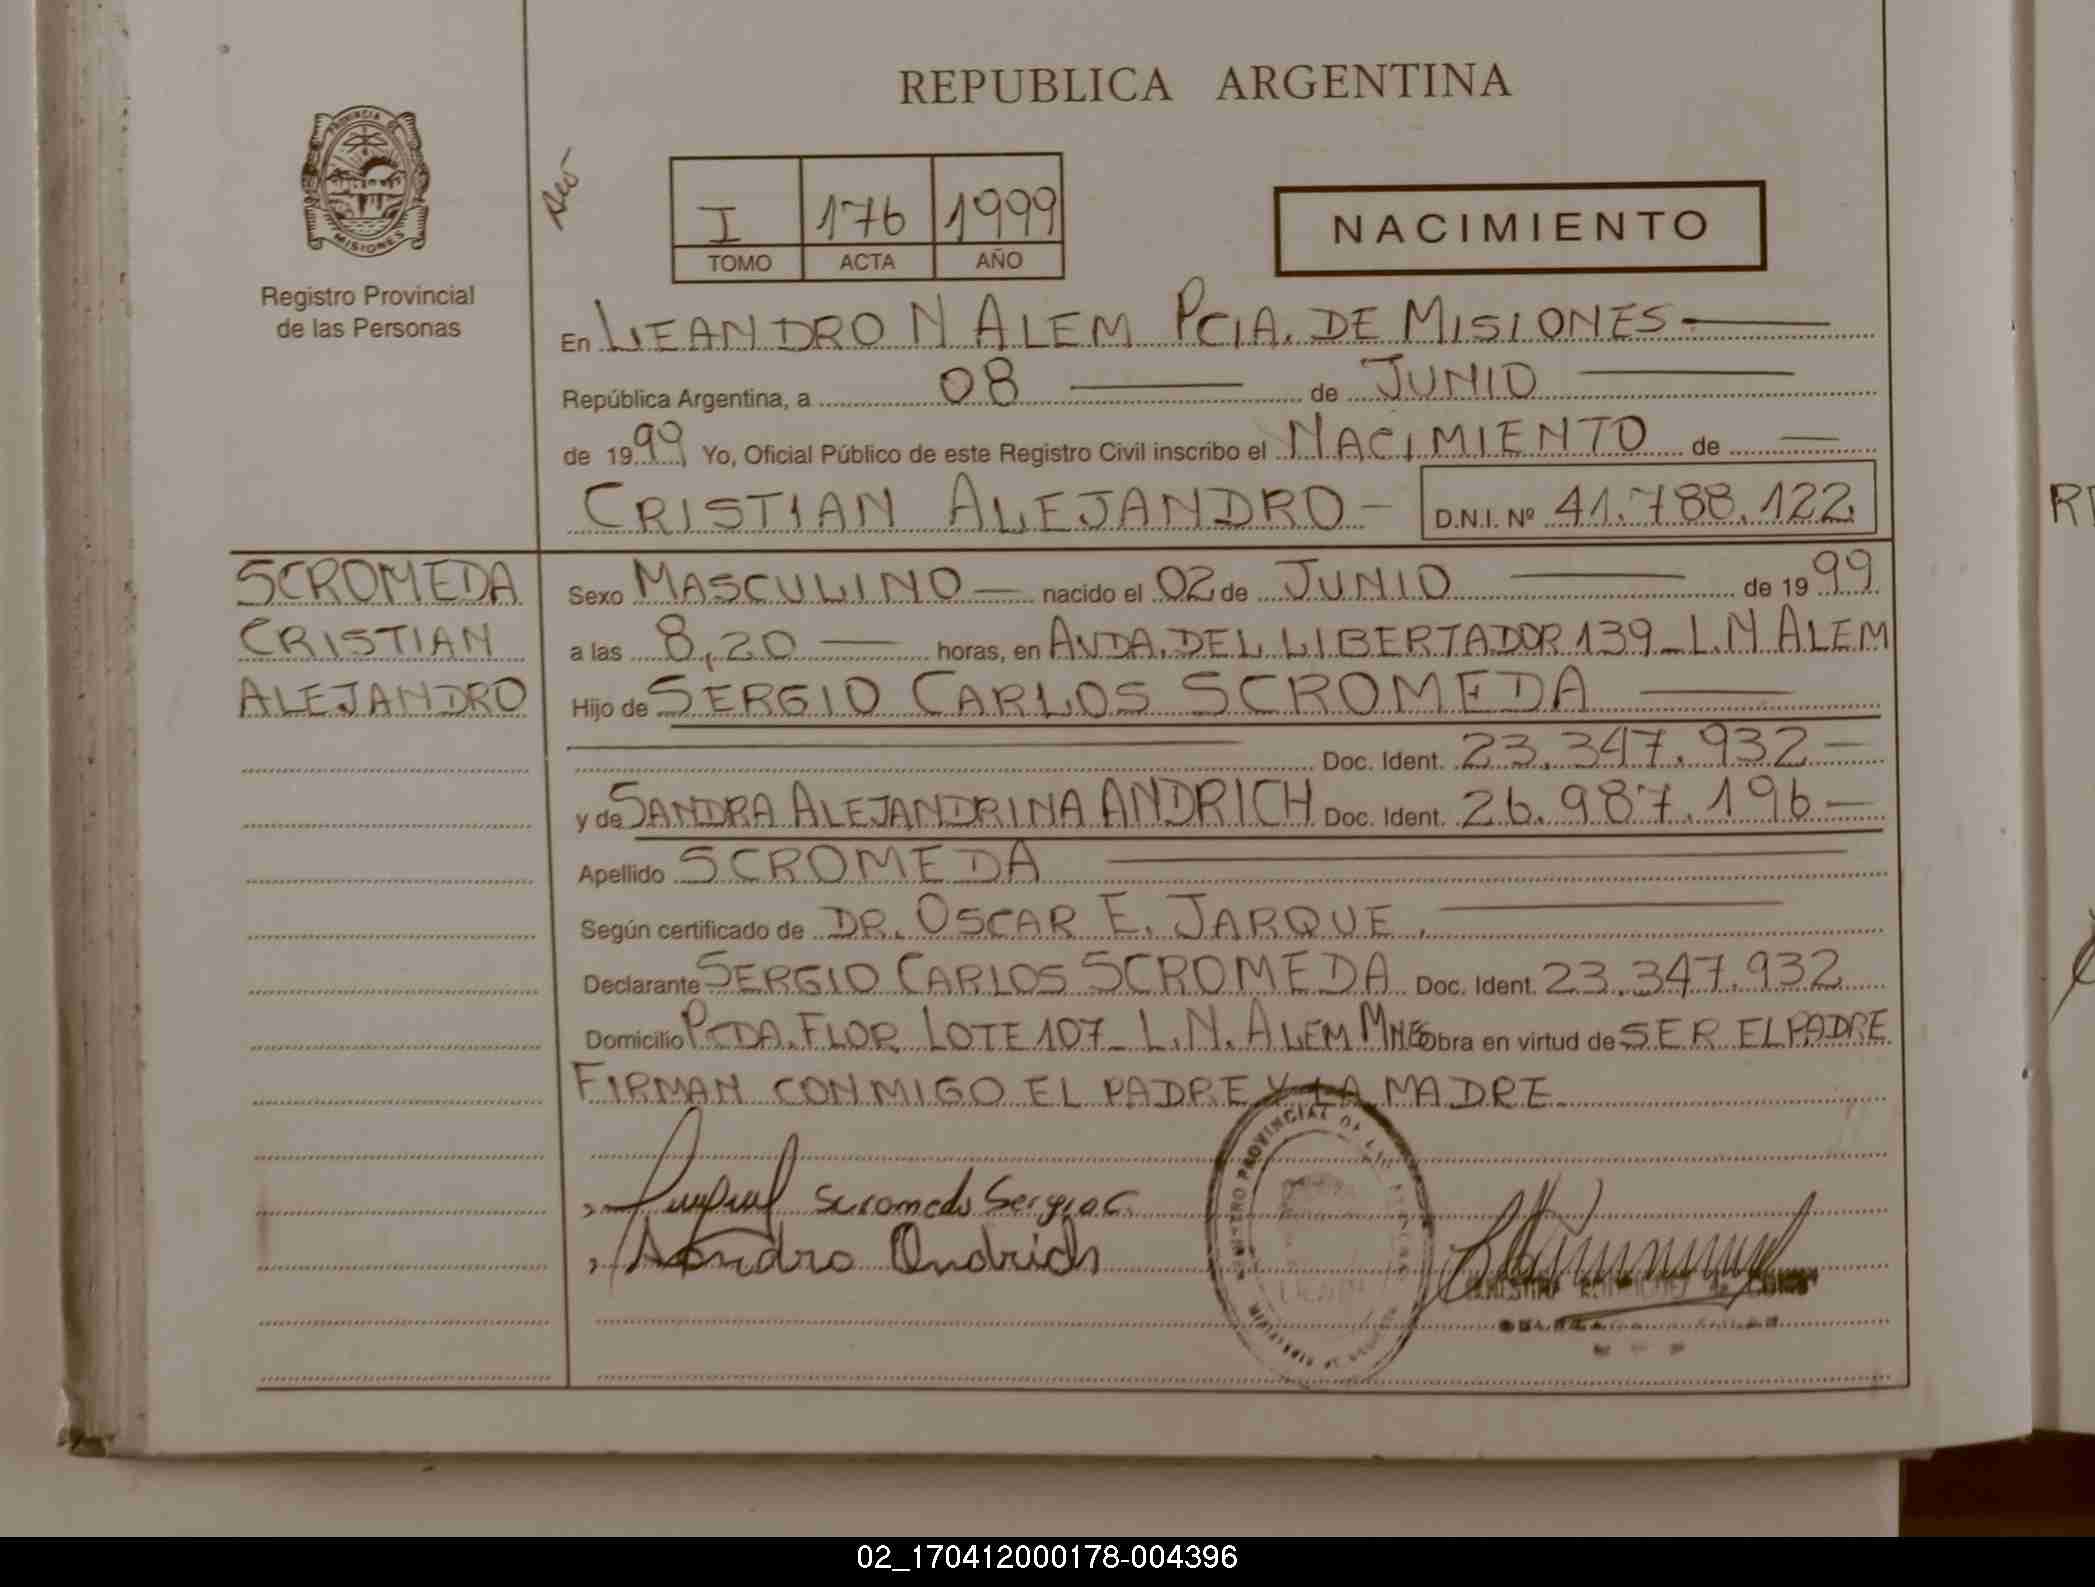 REPUBLICA ARGENTINA
PROVINCIA DE
MISIONES
Registro Provincial
de las Personas
I 176 1999
TOMO ACTA AÑO
NACIMIENTO
En LEANDRO N ALEM PCIA. DE MISIONES
República Argentina, a 08 de JUNIO
de 1999 Yo, Oficial Público de este Registro Civil inscribo el NACIMIENTO de
CRISTIAN ALEJANDRO D.N.I. Nº 41.788.122
SCROMEDA
CRISTIAN
ALEJANDRO
Sexo MASCULINO nacido el 02 de JUNIO de 1999
a las 8,20 horas, en AVDA. DEL LIBERTADOR 139 - L.N ALEM
Hijo de SERGIO CARLOS SCROMEDA
Doc. Ident. 23.347.932
y de SANDRA ALEJANDRINA ANDRICH Doc. Ident. 26.987.196
Apellido SCROMEDA
Según certificado de DR. OSCAR E. JARQUE.
Declarante SERGIO CARLOS SCROMEDA Doc. Ident. 23.347.932
Domicilio PCDA. FLOR LOTE 107 - L.N. ALEM MNES Obra en virtud de SER EL PADRE
FIRMAN CONMIGO EL PADRE Y LA MADRE
Scromeda Sergio C.
Sandra Andrich
02_170412000178-004396